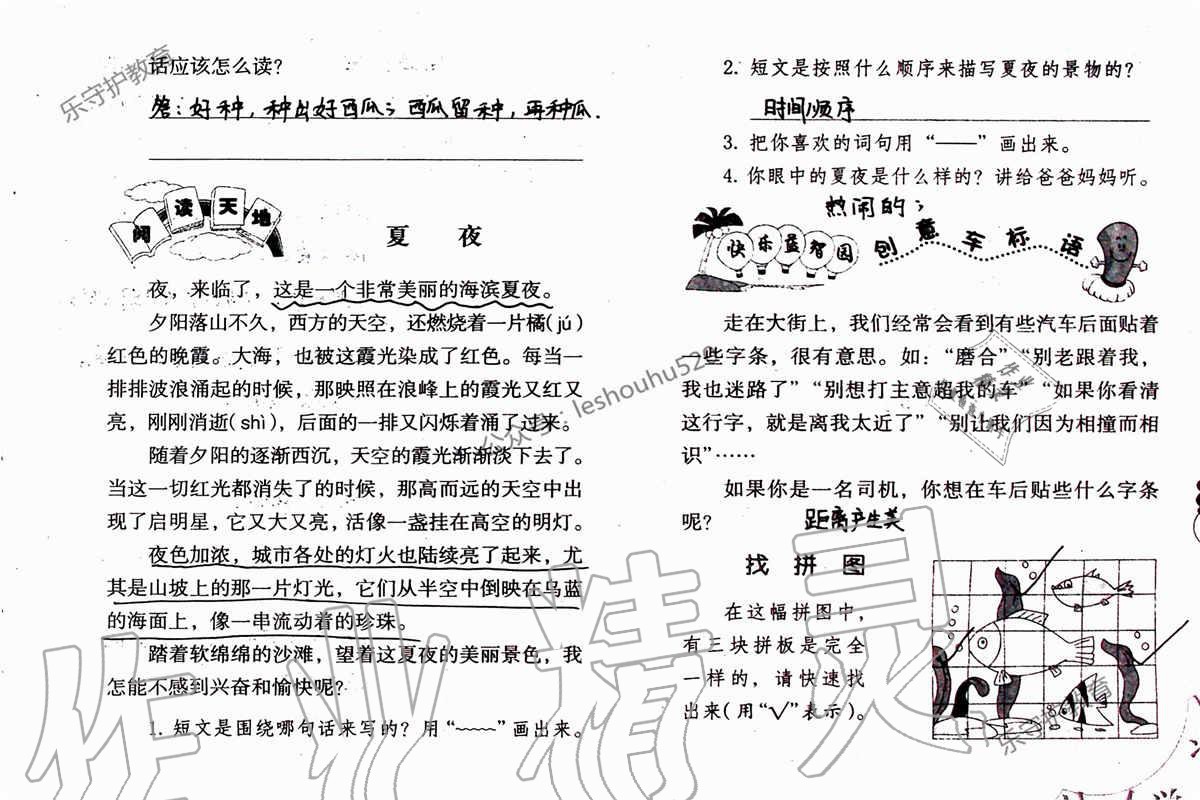 话应该怎么读？
答：好种，种出好西瓜；西瓜留种，再种瓜.
阅读天地
夏 夜
夜，来临了，这是一个非常美丽的海滨夏夜。
夕阳落山不久，西方的天空，还燃烧着一片橘(jú)
红色的晚霞。大海，也被这霞光染成了红色。每当一
排排波浪涌起的时候，那映照在浪峰上的霞光又红又
亮，刚刚消逝(shì)，后面的一排又闪烁着涌了过来。
随着夕阳的逐渐西沉，天空的霞光渐渐淡下去了。
当这一切红光都消失了的时候，那高而远的天空中出
现了启明星，它又大又亮，活像一盏挂在高空的明灯。
夜色加浓，城市各处的灯火也陆续亮了起来，尤
其是山坡上的那一片灯光，它们从半空中倒映在乌蓝
的海面上，像一串流动着的珍珠。
踏着软绵绵的沙滩，望着这夏夜的美丽景色，我
怎能不感到兴奋和愉快呢？
1. 短文是围绕哪句话来写的？用“﹏﹏”画出来。
2. 短文是按照什么顺序来描写夏夜的景物的？
时间顺序
3. 把你喜欢的词句用“——”画出来。
4. 你眼中的夏夜是什么样的？讲给爸爸妈妈听。
热闹的；
快乐益智园
创意车标语
走在大街上，我们经常会看到有些汽车后面贴着
一些字条，很有意思。如：“磨合”“别老跟着我，
我也迷路了”“别想打主意超我的车”“如果你看清
这行字，就是离我太近了”“别让我们因为相撞而相
识”……
如果你是一名司机，你想在车后贴些什么字条
呢？
距离产生美
找拼图
在这幅拼图中，
有三块拼板是完全
一样的，请快速找
出来(用“√”表示)。
乐守护教育
公众号：leshouhu520
乐守护教育
作业精灵